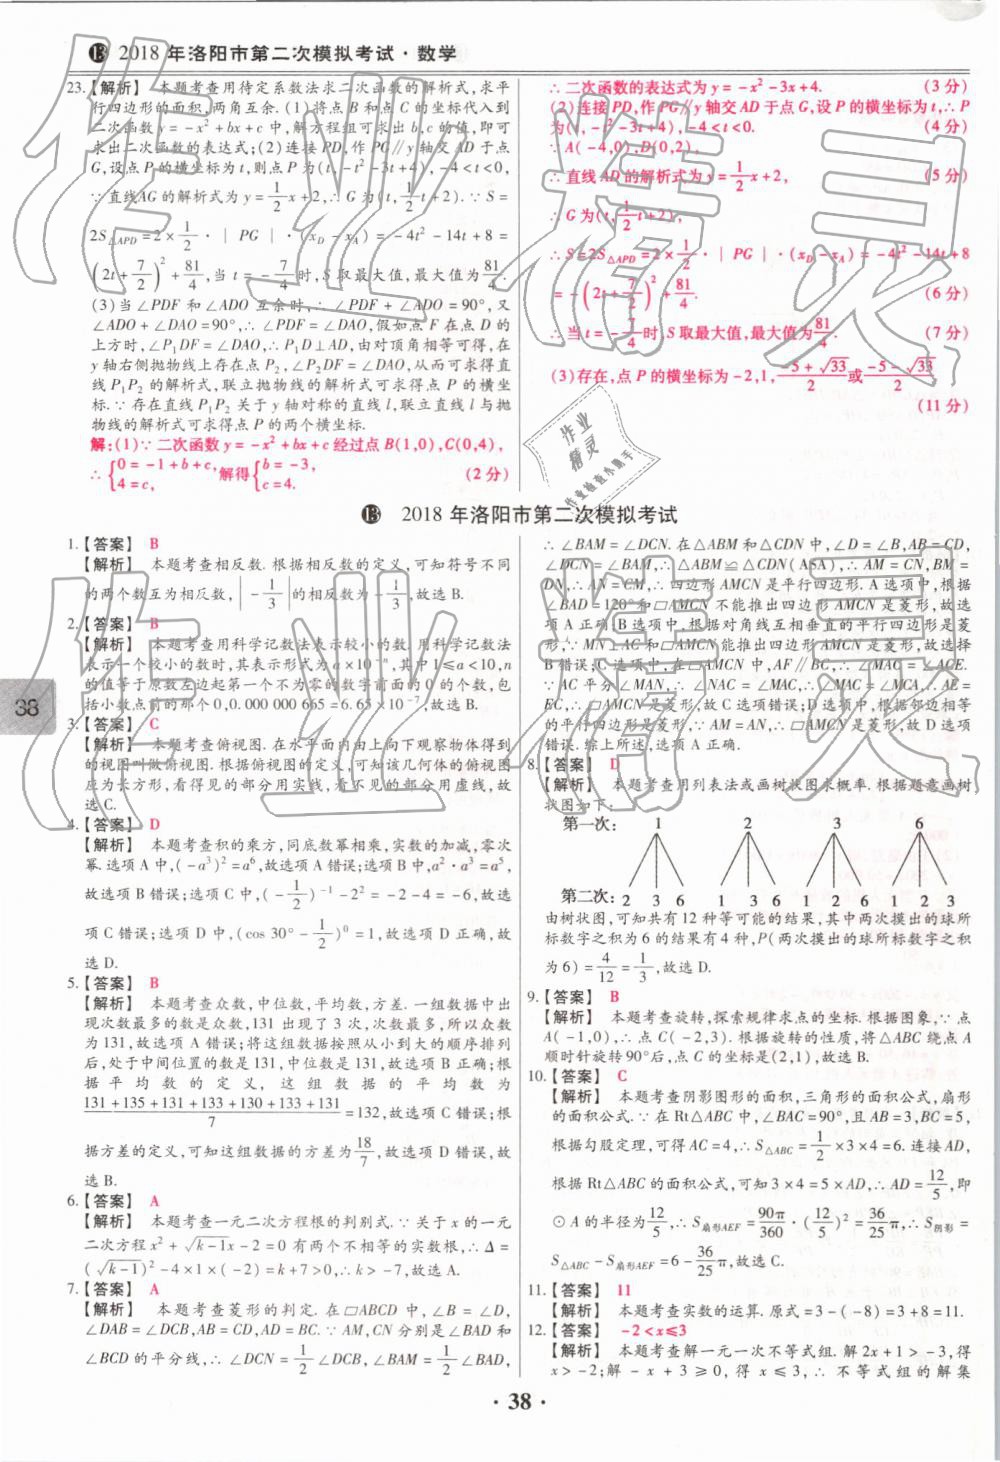 ⓭ 2018 年洛阳市第二次模拟考试 · 数学
23.【解析】 本题考查用待定系数法求二次函数的解析式,求平
行四边形的面积,两角互余.(1)将点 B 和点 C 的坐标代入到
二次函数 y = -x² + bx + c 中,解方程组可求出 b,c 的值,即可
求出二次函数的表达式;(2)连接 PD,作 PG∥y 轴交 AD 于点
G,设点 P 的横坐标为 t,则点 P 为(t, -t² -3t +4), -4<t<0,
∵ 直线AG 的解析式为 y = 1/2 x + 2,∴ G 为(t, 1/2 t +2). ∵ S =
2S△APD = 2 × 1/2 · | PG | · (xD - xA) = -4t² -14t +8 =
-(2t + 7/2)² + 81/4,当 t = - 7/4 时,S 取最大值,最大值为 81/4.
(3)当∠PDF 和∠ADO 互余时,∴ ∠PDF + ∠ADO = 90°,又
∠ADO + ∠DAO = 90°,∴ ∠PDF = ∠DAO,假如点 F 在点 D 的
上方时,∠P₁DF = ∠DAO,∴ P₁D⊥AD,由对顶角相等可得,在
y 轴右侧抛物线上存在点 P₂,∠P₂DF = ∠DAO,从而可求得直
线 P₁P₂ 的解析式,联立抛物线的解析式可求得点 P 的横坐
标.∵ 存在直线 P₁P₂ 关于 y 轴对称的直线 l,联立直线 l 与抛
物线的解析式可求得点 P 的两个横坐标.
解:(1)∵ 二次函数 y = -x² + bx + c 经过点 B(1,0),C(0,4),
∴ {0 = -1 + b + c, 4 = c, 解得{b = -3, c = 4. (2 分)
∴ 二次函数的表达式为 y = -x² -3x +4. (3 分)
(2)连接 PD,作 PG∥y 轴交 AD 于点 G,设 P 的横坐标为 t,∴ P
为(t, -t² -3t +4), -4<t<0. (4 分)
∵ A(-4,0),D(0,2),
∴ 直线 AD 的解析式为 y = 1/2 x + 2, (5 分)
∴ G 为(t, 1/2 t + 2),
∴ S = 2S△APD = 2 × 1/2 · | PG | · (xD - xA) = -4t² -14t +8
= -(2t + 7/2)² + 81/4. (6 分)
∴ 当 t = - 7/4 时 S 取最大值,最大值为 81/4. (7 分)
(3)存在,点 P 的横坐标为 -2,1, (-5+√33)/2 或 (-5-√33)/2.
(11 分)
⓭ 2018 年洛阳市第二次模拟考试
1.【答案】 B
【解析】 本题考查相反数. 根据相反数的定义,可知符号不同
的两个数互为相反数, |-1/3| 的相反数为 -1/3,故选 B.
2.【答案】 B
【解析】 本题考查用科学记数法表示较小的数. 用科学记数法
表示一个较小的数时,其表示形式为 a × 10⁻ⁿ,其中1≤a<10,n
的值等于原数左边起第一个不为零的数字前面的 0 的个数,包
括小数点前的那个 0,0.000 000 665 = 6.65 × 10⁻⁷,故选 B.
3.【答案】 C
【解析】 本题考查俯视图. 在水平面内由上向下观察物体得到
的视图叫做俯视图. 根据俯视图的定义,可知该几何体的俯视图
应为长方形,看得见的部分用实线,看不见的部分用虚线,故
选 C.
4.【答案】 D
【解析】 本题考查积的乘方,同底数幂相乘,实数的加减,零次
幂. 选项 A 中,(-a³)² = a⁶,故选项 A 错误;选项 B 中,a² · a³ = a⁵,
故选项 B 错误;选项 C 中,(-1/2)⁻¹ - 2² = -2 - 4 = -6,故选
项 C 错误;选项 D 中,(cos 30° - 1/2)⁰ = 1,故选项 D 正确,故
选 D.
5.【答案】 B
【解析】 本题考查众数,中位数,平均数,方差. 一组数据中出
现次数最多的数是众数,131 出现了 3 次,次数最多,所以众数
为 131,故选项 A 错误;将这组数据按照从小到大的顺序排列
后,处于中间位置的数是 131,中位数是 131,故选项 B 正确;根
据平均数的定义,这组数据的平均数为
(131+135+131+133+130+133+131)/7 = 132,故选项 C 错误;根
据方差的定义,可知这组数据的方差为 18/7,故选项 D 错误,故
选 B.
6.【答案】 A
【解析】 本题考查一元二次方程根的判别式. ∵ 关于 x 的一元
二次方程 x² + √(k-1)x - 2 = 0 有两个不相等的实数根,∴ Δ =
(√(k-1))² - 4 × 1 × (-2) = k + 7 > 0,∴ k > -7,故选 A.
7.【答案】 A
【解析】 本题考查菱形的判定. 在▱ABCD 中,∠B = ∠D,
∠DAB = ∠DCB,AB = CD,AD = BC. ∵ AM,CN 分别是∠BAD 和
∠BCD 的平分线,∴ ∠DCN = 1/2 ∠DCB,∠BAM = 1/2 ∠BAD,
∴ ∠BAM = ∠DCN. 在△ABM 和△CDN 中,∠D = ∠B,AB = CD,
∠DCN = ∠BAM,∴ △ABM ≌ △CDN(ASA),∴ AM = CN,BM =
DN,∴ AN = CM,∴ 四边形 AMCN 是平行四边形. A 选项中,根据
∠BAD = 120°和▱AMCN 不能推出四边形 AMCN 是菱形,故选
项 A 正确;B 选项中,根据对角线互相垂直的平行四边形是菱
形,∵ MN⊥AC 和▱AMCN 能推出四边形 AMCN 是菱形,故选择
B 错误;C 选项中,在▱AMCN 中,AF∥BC,∴ ∠MAC = ∠ACE.
∵ AC 平分∠MAN,∴ ∠NAC = ∠MAC,∴ ∠MAC = ∠MCA,∴ AE =
EC,∴ ▱AMCN 是菱形,故 C 选项错误;D 选项中,根据邻边相等
的平行四边形是菱形,∵ AM = AN,∴ ▱AMCN 是菱形,故 D 选项
错误. 综上所述,选项 A 正确.
8.【答案】 D
【解析】 本题考查用列表法或画树状图求概率. 根据题意画树
状图如下:
第一次: 1 2 3 6
第二次: 2 3 6 1 3 6 1 2 6 1 2 3
由树状图,可知共有 12 种等可能的结果,其中两次摸出的球所
标数字之积为 6 的结果有 4 种,P(两次摸出的球所标数字之积
为 6) = 4/12 = 1/3,故选 D.
9.【答案】 B
【解析】 本题考查旋转,探索规律求点的坐标. 根据图象,∵ 点
A(-1,0),∴ 点 C(-2,3). 根据旋转的性质,将△ABC 绕点 A
顺时针旋转 90°后,点 C 的坐标是(2,1),故选 B.
10.【答案】 C
【解析】 本题考查阴影图形的面积,三角形的面积公式,扇形
的面积公式. ∵ 在 Rt△ABC 中,∠BAC = 90°,且 AB = 3,BC = 5,
根据勾股定理,可得 AC = 4,∴ S△ABC = 1/2 × 3 × 4 = 6. 连接 AD,
根据 Rt△ABC 的面积公式,可知 3 × 4 = 5 × AD,∴ AD = 12/5,即
⊙A 的半径为 12/5,∴ S扇形AEF = 90π/360 · (12/5)² = 36/25 π,∴ S阴影 =
S△ABC - S扇形AEF = 6 - 36/25 π,故选 C.
11.【答案】 11
【解析】 本题考查实数的运算. 原式 = 3 - (-8) = 3 + 8 = 11.
12.【答案】 -2 < x ≤ 3
【解析】 本题考查解一元一次不等式组. 解 2x + 1 > -3,得
x > -2;解 -x + 3 ≥ 0,得 x ≤ 3,∴ 不等式组的解集
38
· 38 ·
作业精灵
作业精灵
作业精灵
作业检查小助手